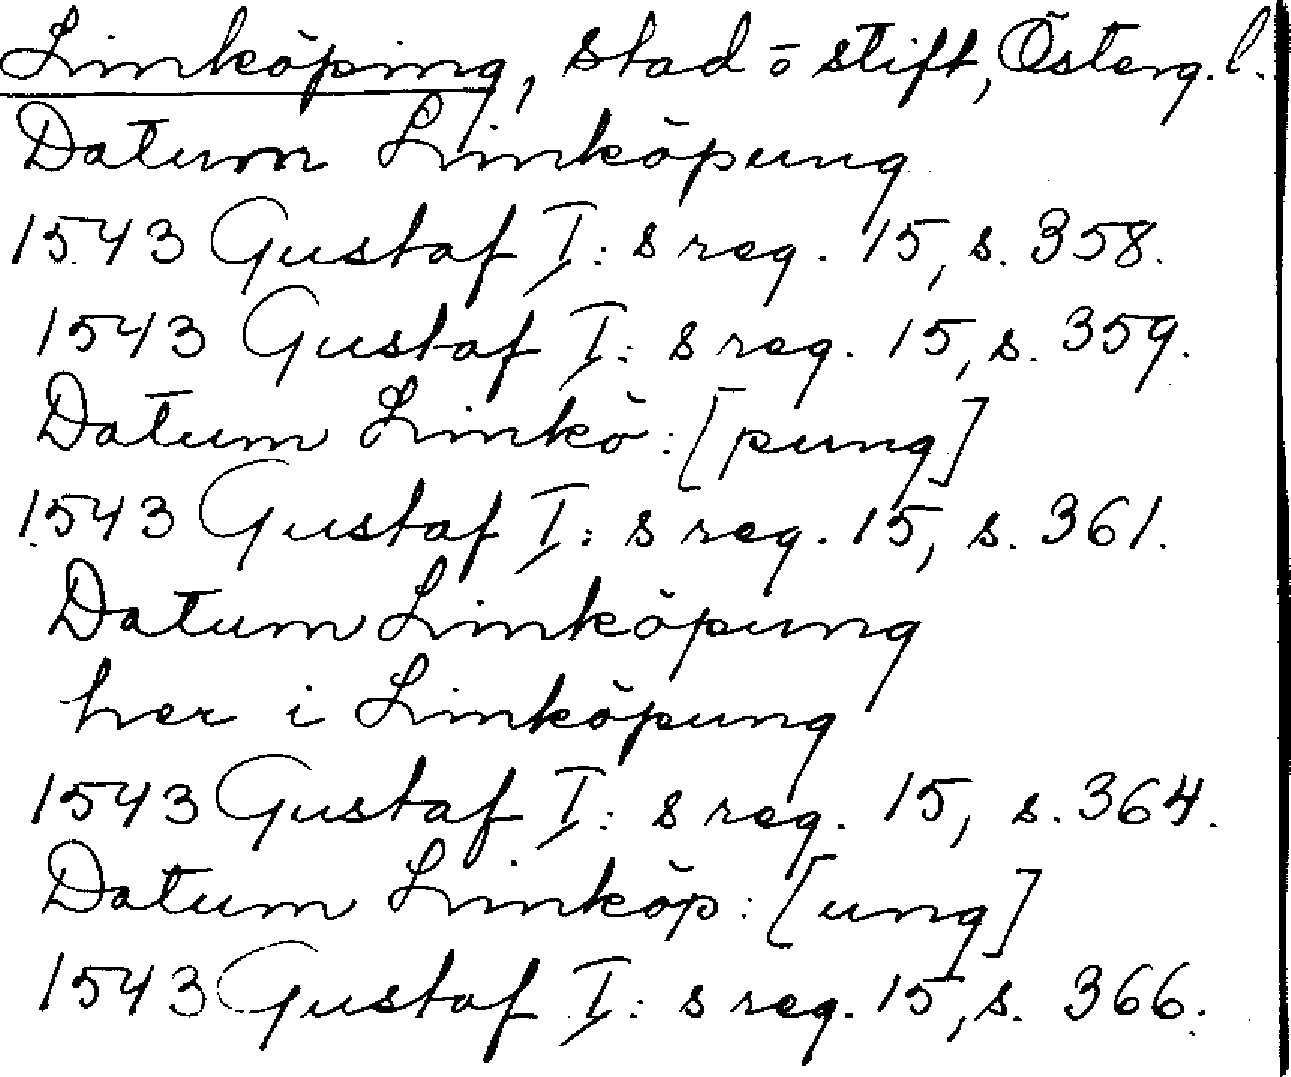 Linköping, stad o stift, Österg. l.
Datum Linköpung
1543 Gustaf I:s reg. 15, s. 358.
1543 Gustaf I:s reg. 15, s. 359.
Datum Linkö:[pung]
1543 Gustaf I:s reg. 15, s. 361.
Datum Linköpung
her i Linköpung
1543 Gustaf I:s reg. 15, s. 364.
Datum Linköp:[ung]
1543 Gustaf I:s reg. 15, s. 366.